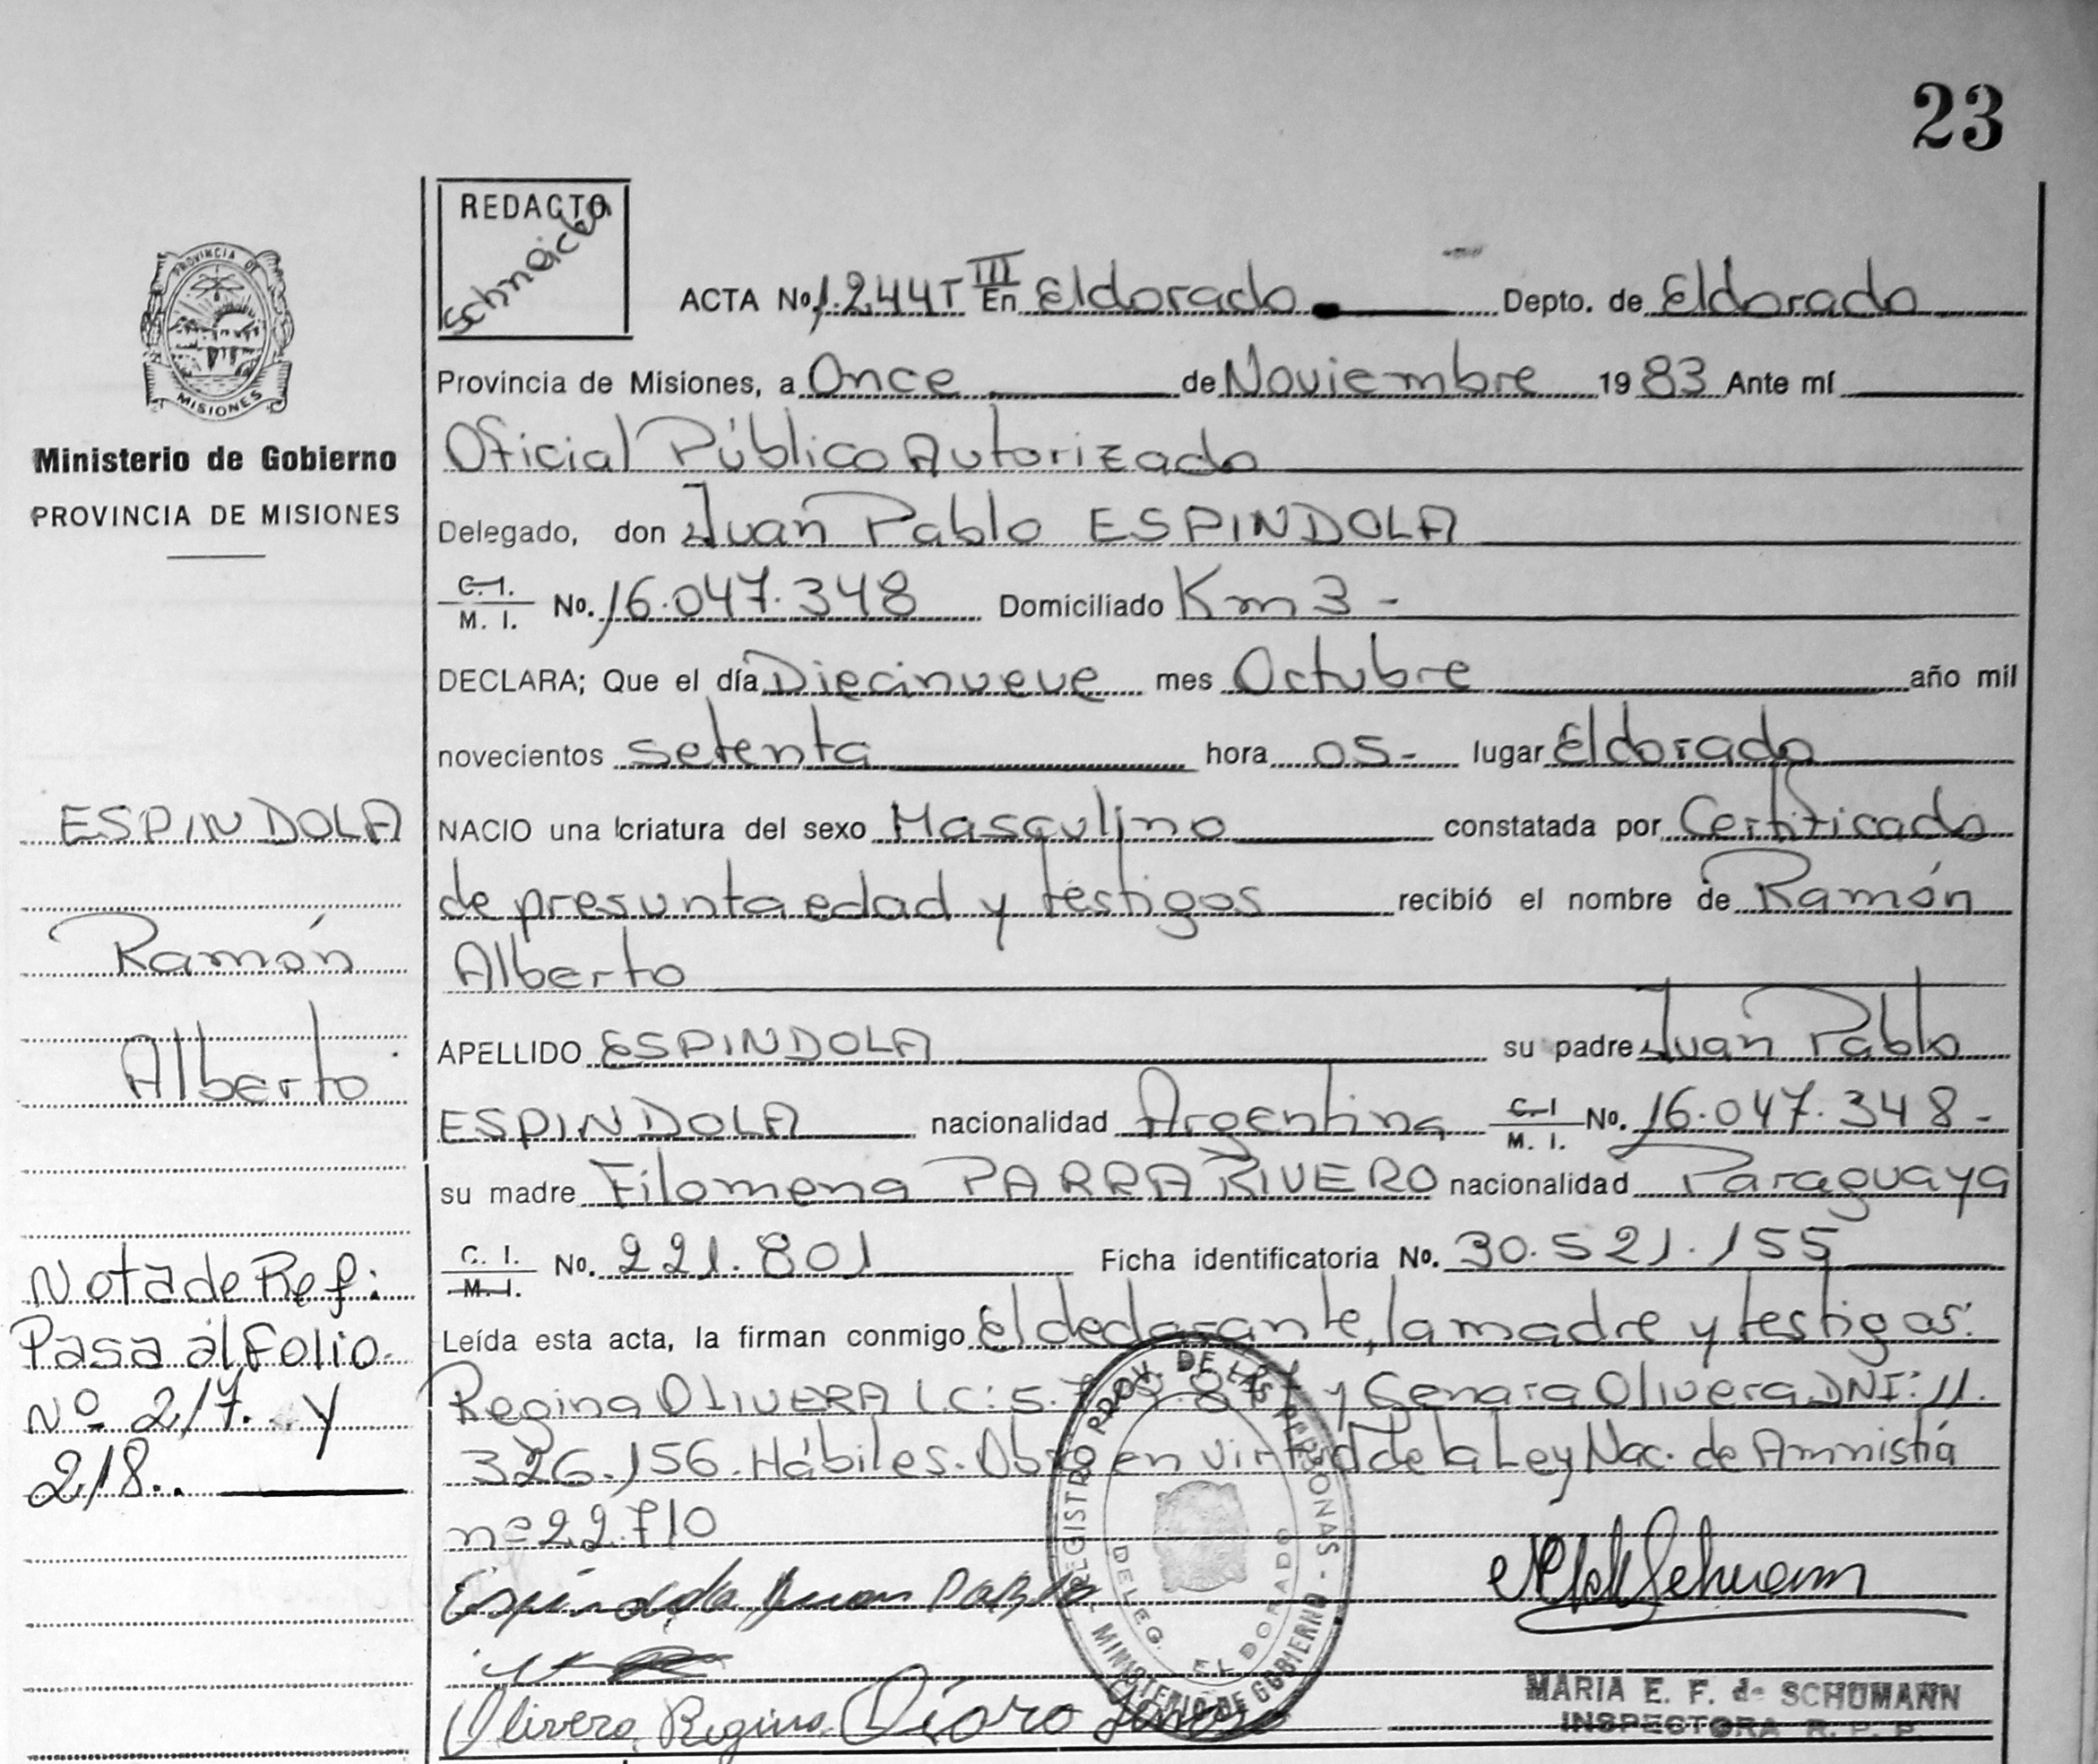 23
REDACTO
Schneider
PROVINCIA DE
MISIONES
Ministerio de Gobierno
PROVINCIA DE MISIONES
ACTA No. 1.244 T III En Eldorado Depto. de Eldorado
Provincia de Misiones, a Once de Noviembre 1983 Ante mí
Oficial Público Autorizado
Delegado, don Juan Pablo ESPINDOLA
C. I. M. I. No. 16.047.348 Domiciliado Km 3 -
DECLARA; Que el día Diecinueve mes Octubre año mil
novecientos setenta hora 05- lugar Eldorado
NACIO una criatura del sexo Masculino constatada por Certificado
de presunta edad y testigos recibió el nombre de Ramón
Alberto
APELLIDO ESPINDOLA su padre Juan Pablo
ESPINDOLA nacionalidad Argentina C. I. M. I. No. 16.047.348-
su madre Filomena PARRA RIVERO nacionalidad Paraguaya
C. I. M. I. No. 221.801 Ficha identificatoria No. 30.521.155
Leída esta acta, la firman conmigo el declarante, la madre y testigos:
Regina OLIVERA L.C: 5. y Genara Olivera DNI: 11.
326.156. Hábiles. Obro en virtud de la Ley Nac. de Amnistía
nº 22.710
Espindola Juan Pablo
Olivera Regina
ESPINDOLA
Ramón
Alberto
Nota de Ref:
Pasa al Folio
Nº 217. y
218.
REGISTRO PROV. DE LAS PERSONAS - MINISTERIO DE GOBIERNO -
DELEG. ELDORADO
MARIA E. F. de SCHUMANN
INSPECTORA R. P. P.